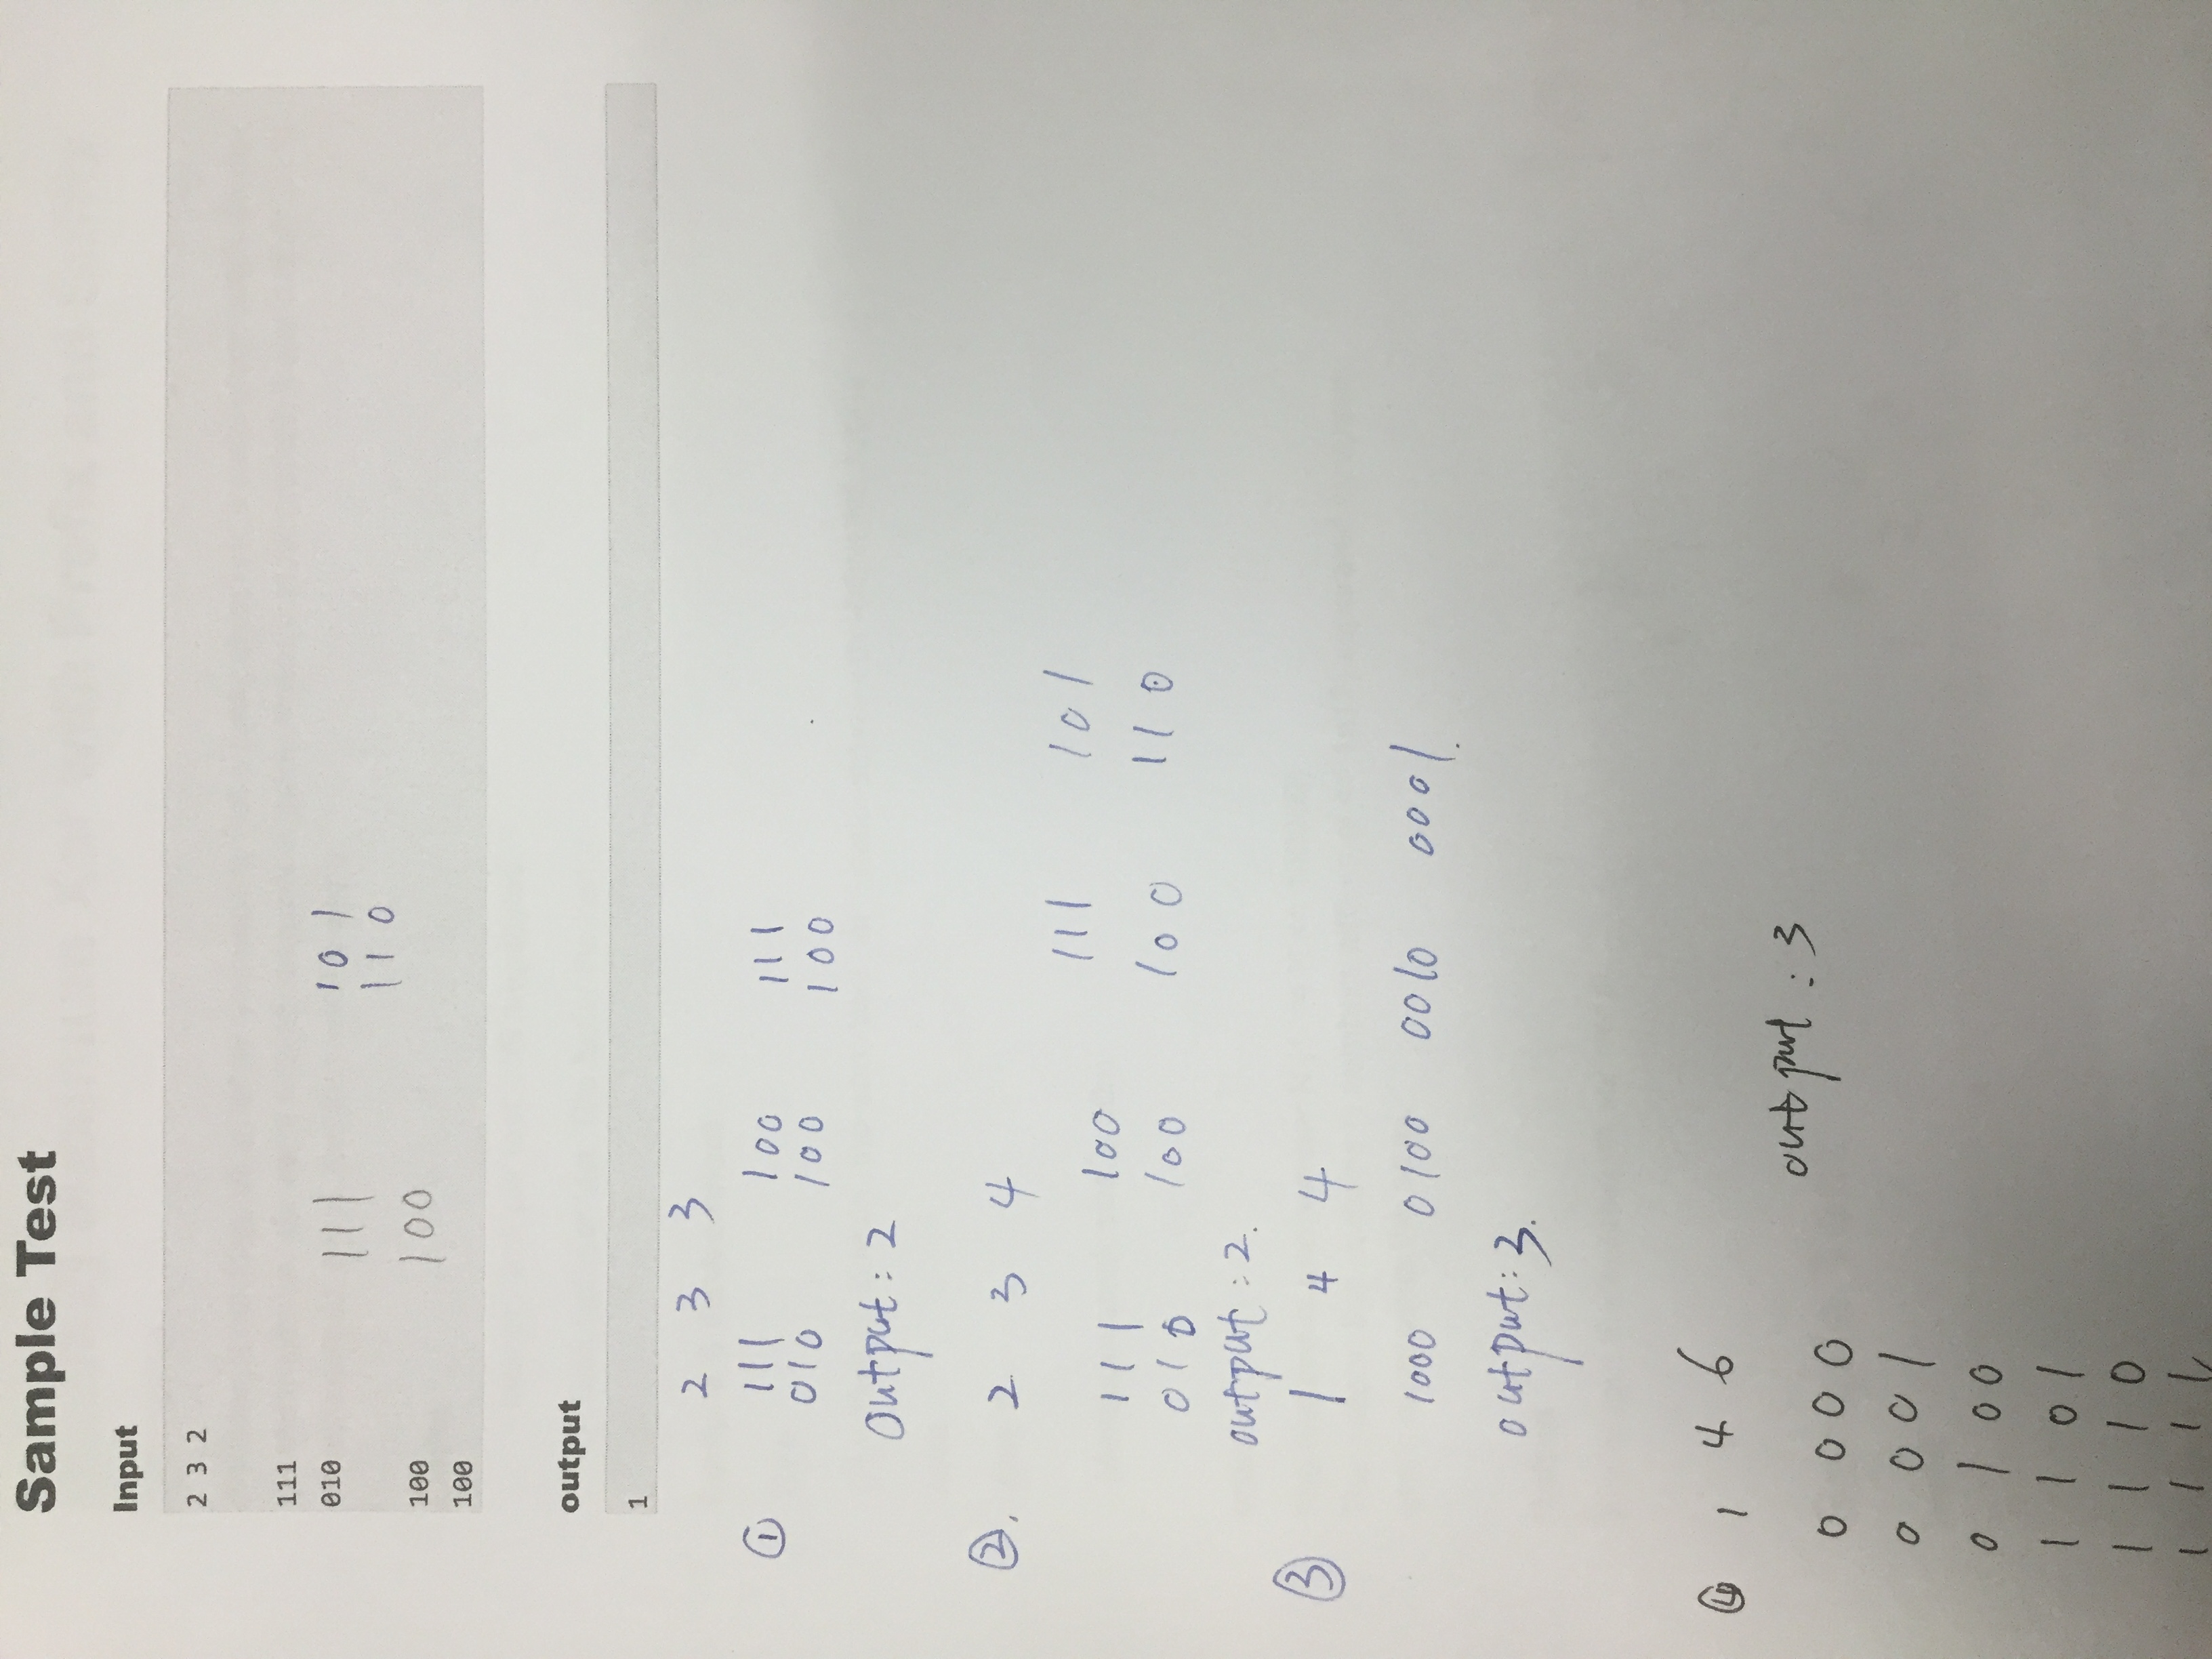 Sample Test
Input
2 3 2
111
010
100
100
111
100
1 0 1
1 1 0
output
1
2 3 3
① 111 100 111
010 100 100
Output : 2
②. 2 3 4
111 100 111 101
010 100 100 110
output : 2.
③ 1 4 4
1000 0100 0010 0001.
output : 3.
④ 1 4 6
output : 3
0 0 0 0
0 0 0 1
0 1 0 0
1 1 0 1
1 1 1 0
1 1 1 1